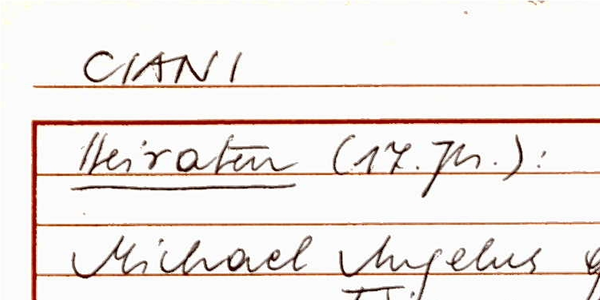 CIANI
Heiraten (17. Jh.):
Michael Angelus